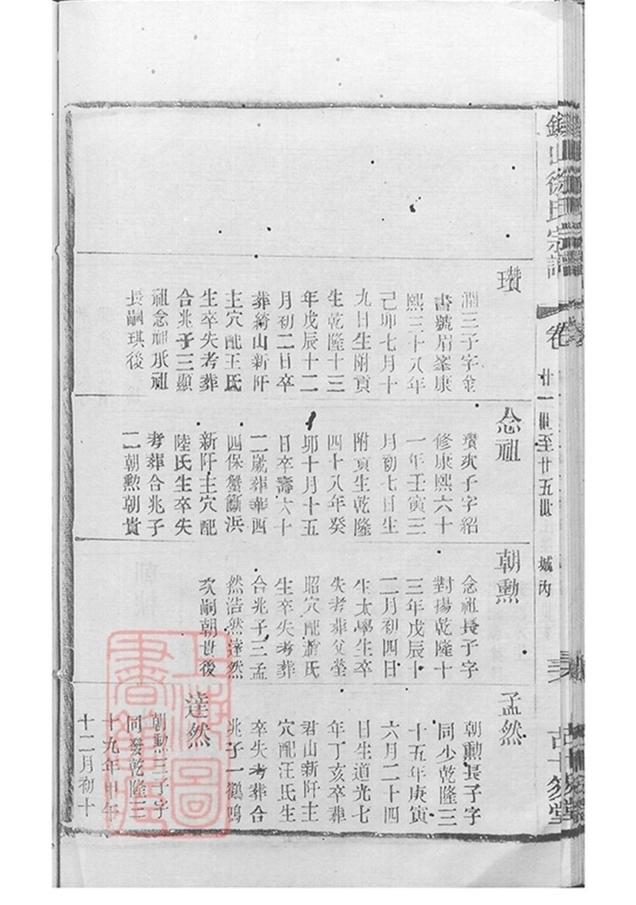 山徐氏宗譜
卷
廿一世至廿五世 城內
瓚
潤三子字金
書號眉峯康
熙三十八年
己卯七月十
九日生附貢
生乾隆十三
年戊辰十二
月初二日卒
葬綺山新阡
主穴配王氏
生卒失考葬
合兆子三顯
祖念祖承祖
長嗣琪後
念祖
瓚次子字紹
修康熙六十
一年壬寅三
月初七日生
附貢生乾隆
四十八年癸
卯十月十五
日卒壽六十
二歲葬華西
四保蟹螄浜
新阡主穴配
陸氏生卒失
考葬合兆子
二朝勲朝貴
朝勲
念祖長子字
對揚乾隆十
三年戊辰十
二月初四日
生太學生卒
失考葬父塋
昭穴配湯氏
生卒失考葬
合兆子三孟
然浩然達然
次嗣朝世後
孟然
朝勲長子字
同少乾隆三
十五年庚寅
六月二十四
日生道光七
年丁亥卒葬
君山新阡主
穴配汪氏生
卒失考葬合
兆子一鶴鳴
達然
朝勲三子字
同發乾隆三
十九年甲午
十二月初十
上海圖
書館藏